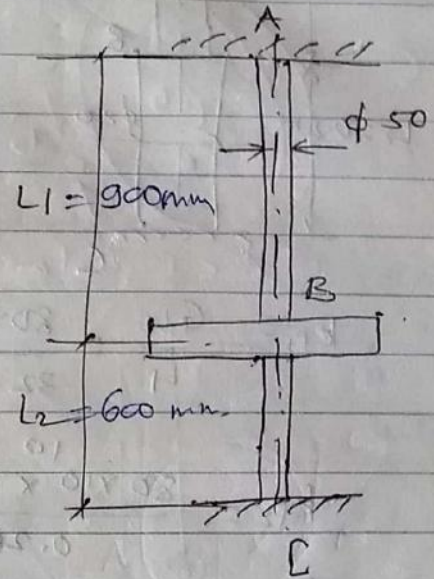 A
ϕ 50
L1 = 900mm
B
L2 = 600 mm.
C